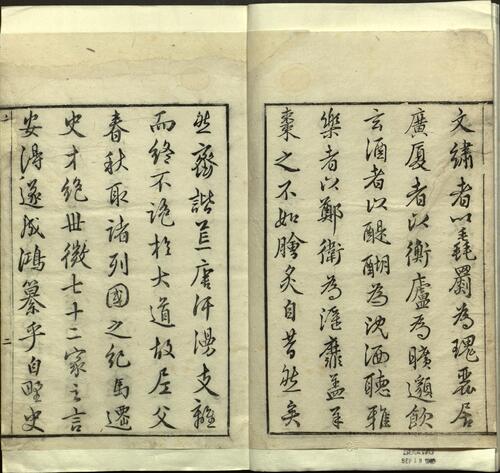 文繡者以毳罽為瑰麗居
廣廈者以衡廬為曠邈飲
玄酒者以醍醐為沈洒聽雅
樂者以鄭衛為淫靡蓋羊
棗之不如膾炙自昔然矣
然齊諧荒唐汗漫支離
而終不詭於大道故尼父
春秋取諸列國之紀馬遷
史才絕世徵七十二家之言
安得遂成鴻纂乎自野史
二